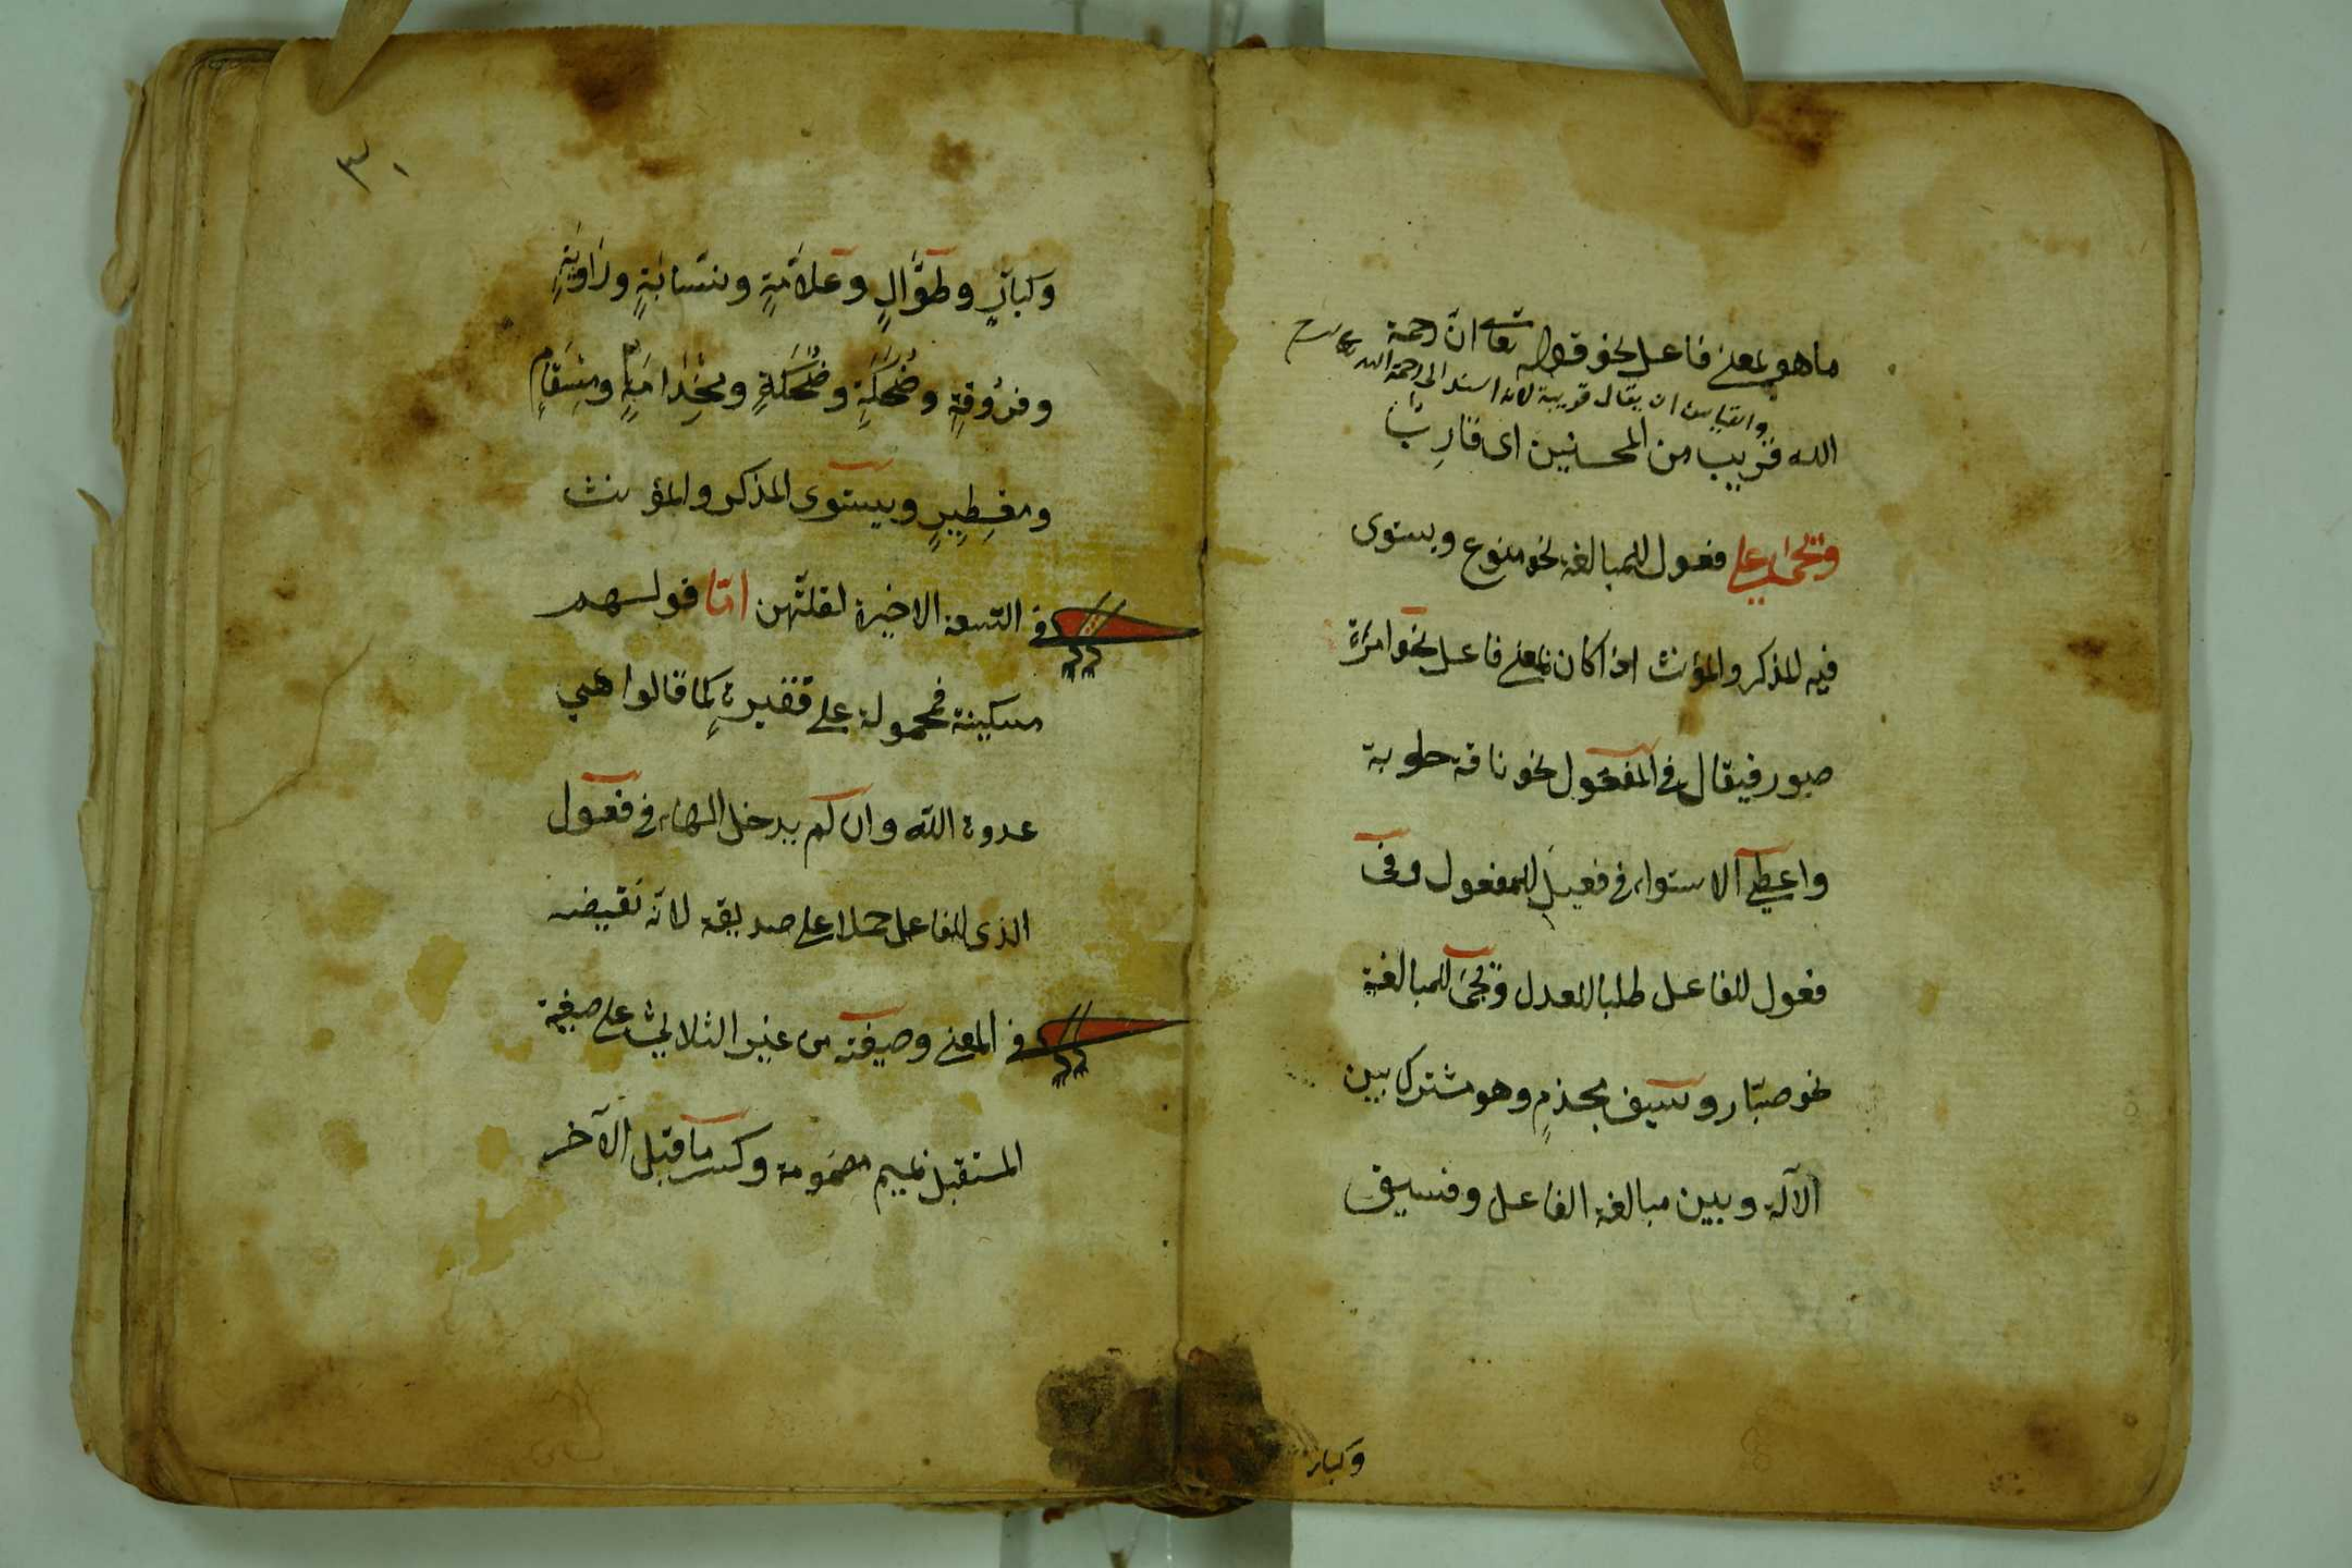 ما هو بمعنى فاعل نحو قوله تعالى ان رحمة
والقياس ان يقال قريبة لانه اسند الى رحمة الله
الله قريب من المحسنين اى قارب
وتجئ على فعول للمبالغة نحو منوع ويستوى
فيه المذكر والمؤنث اذا كان بمعنى فاعل نحو امراة
صبور فيقال فى المفعول نحو ناقة حلوبة
واعطى الاستواء فى فعيل للمفعول وفى
فعول للفاعل طلبا للعدل وتجئ للمبالغة
نحو صبّار وسيف مجذم وهو مشترك بين
الآلة وبين مبالغة الفاعل وفسيق
وكبار
٣٠
وكبارٍ وطوّالٍ وعلاّمةٍ ونسّابةٍ وراويةٍ
وفروقةٍ وضُحَكَةٍ وضُحْكَةٍ ومِجْذامَةٍ ومِسْقامٍ
ومعطيرٍ ويستوى المذكر والمؤنث
فى التسعة الاخيرة لقلّتهن امّا قولهم
مسكينة فمحمولة على فقيرة كما قالوا هى
عدوة الله وان لم يدخل الهاء فى فعول
الذى للفاعل حملا على صديقة لانه نقيضه
فى المعنى وصيغته من غير الثلاثى على صيغة
المستقبل بميم مضمومة وكسر ما قبل الآخر